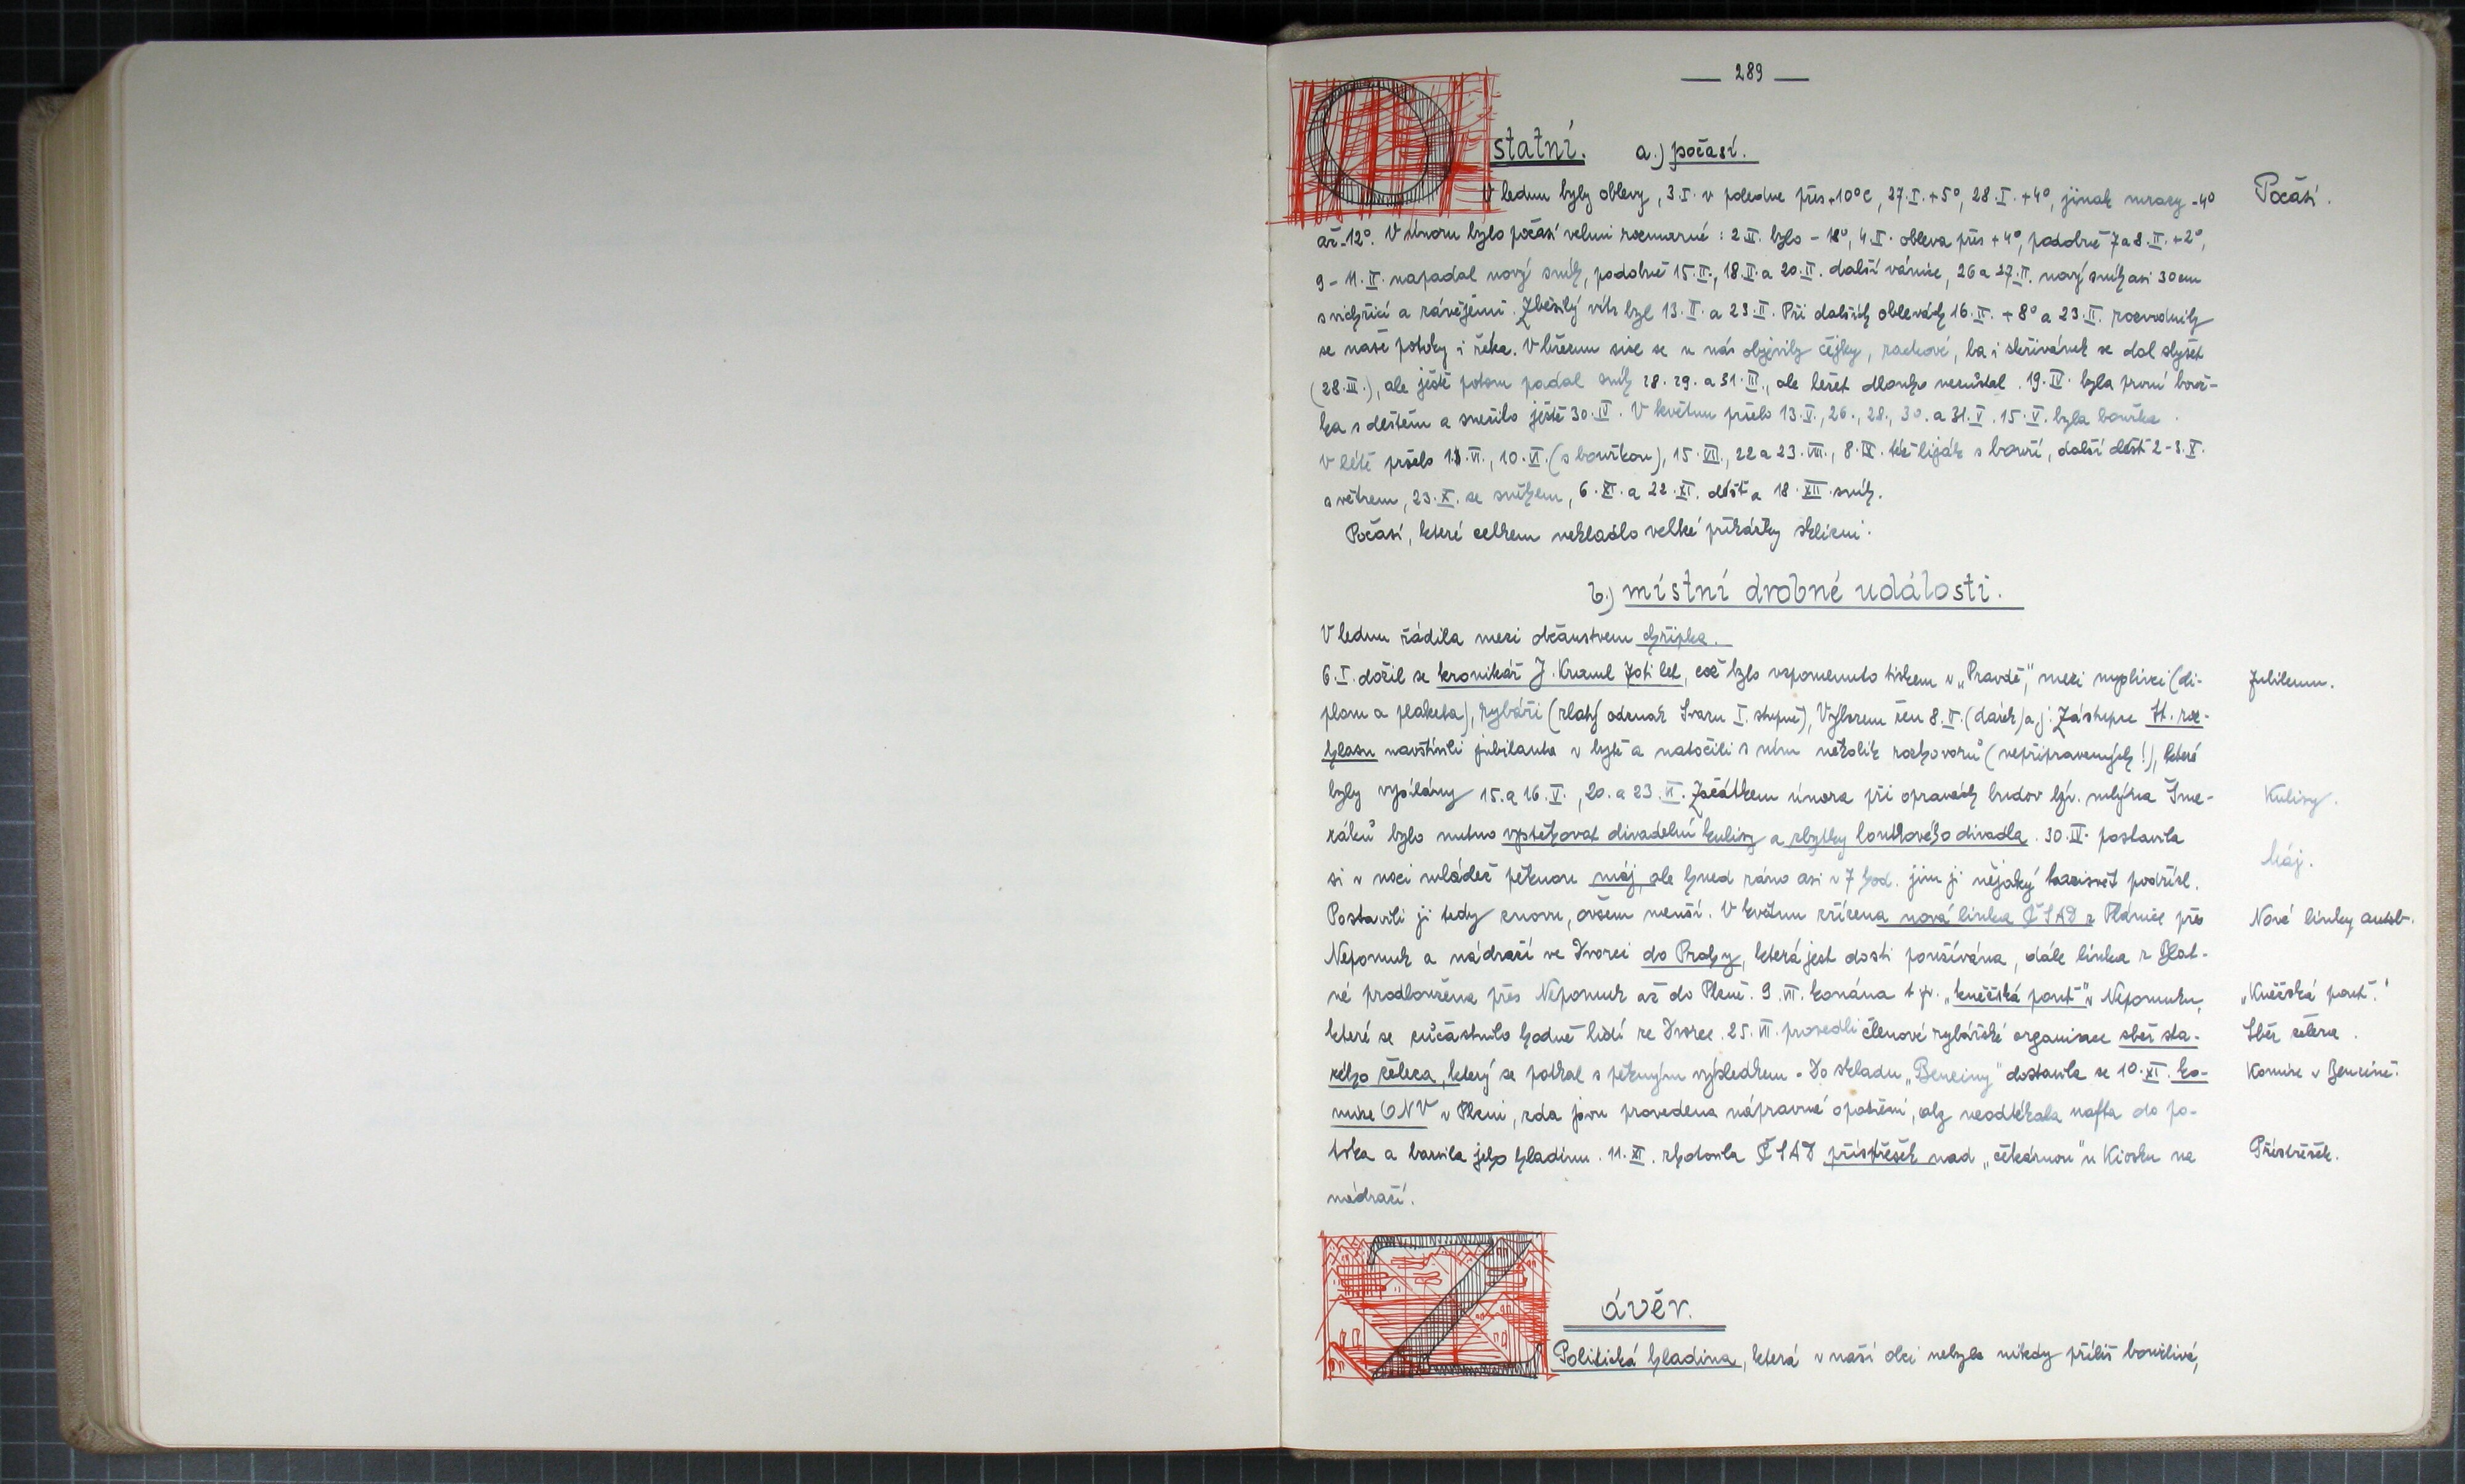 — 289 —
Ostatní. a.) počasí.
V lednu byly oblevy, 3.I. v poledne přes +10°C, 27.I. +5°, 28.I. +4°, jinak mrazy -4°
Počasí.
až -12°. V únoru bylo počasí velmi rozmarné: 2.II. bylo -18°, 4.II. obleva přes +4°, podobně 7 a 8.II. +2°,
9-11.II. napadal nový sníh, podobně 15.II., 18.II. a 20.II. další vánice, 26 a 27.II. nový sníh asi 30 cm
s vichřicí a závějemi. Zběsilý vítr byl 13.II. a 23.II. Při dalších oblevách 16.II. +8° a 23.II. rozvodnily
se naše potoky i řeka. V březnu sice se u nás objevily čejky, rackové, ba i skřivánek se dal slyšet
(28.III.), ale ještě potom padal sníh 28. 29. a 31.III., ale ležet dlouho nezůstal. 19.IV. byla první bouř-
ka s deštěm a sněžilo ještě 30.IV. V květnu pršelo 13.V., 26., 28., 30. a 31.V. 15.V. byla bouřka.
V létě pršelo 18.VI., 10.VI. (s bouřkou), 15.VII., 22 a 23.VIII., 8.IX. též liják s bouří, další déšť 2-3.X.
s větrem, 23.X. se sněhem, 6.XI. a 22.XI. déšť a 18.XII. sníh.
Počasí, které celkem nekladlo velké překážky sklizni.
b.) místní drobné události.
V lednu řádila mezi občanstvem chřipka.
6.I. dožil se kronikář J. Kraml 70ti let, což bylo vzpomenuto tiskem v „Pravdě", mezi nymplíři (di-
Jubileum.
plom a plaketa), rybáři (zlatý odznak Svazu I. stupně), Výborem žen 8.V. (dárek) a j. Zástupce St. roz-
hlasu navštívili jubilanta v bytě a natočili s ním několik rozhovorů (nepřipravených!), které
byly vysílány 15. a 16.V., 20. a 23.VI. Začátkem února při opravách budov býv. mlýna Šme-
Kulisy.
ráků bylo nutno vystěhovat divadelní kulisy a zbytky loutkového divadla. 30.IV. postavila
si v noci mládež pěknou máj, ale hned ráno asi v 7 hod. jim ji nějaký kazisvět podřízl.
Máj.
Postavili ji tedy znovu, ovšem menší. V květnu zřízena nová linka ČSAD z Plánice přes
Nové linky autob.
Nepomuk a nádraží ve Dvorci do Prahy, která jest dosti používána, dále linka z Blat-
né prodloužena přes Nepomuk až do Plzně. 9.VII. konána t.zv. „kněžská pouť" v Nepomuku,
„Kněžská pouť."
které se zúčastnilo hodně lidí ze Dvorce. 25.VII. provedli členové rybářské organisace sběr sta-
Sběr železa.
rého železa, který se potkal s pěkným výsledkem. Do skladu „Benziny" dostavila se 10.XI. ko-
Komise v Benzině.
mise ONV v Plzni, zda jsou provedena nápravná opatření, aby neodtékala nafta do po-
toka a barvila jeho hladinu. 11.XI. zhotovila ČSAD přístřešek nad „čekárnou" u Kiosku na
Přístřešek.
nádraží.
Závěr.
Politická hladina, která v naší obci nebyla nikdy příliš bouřlivá,